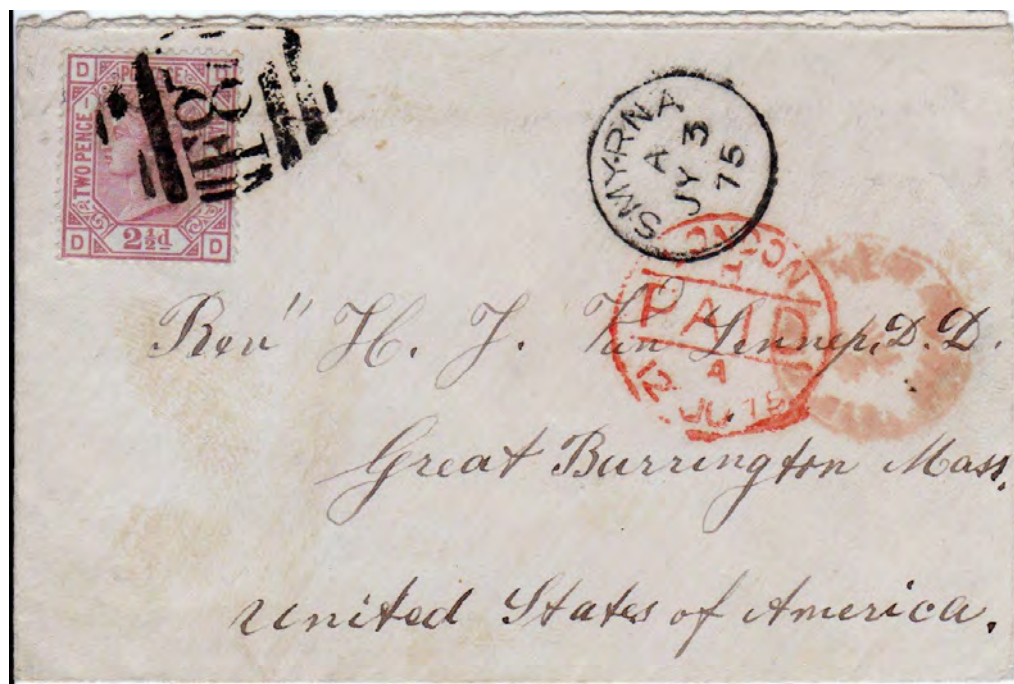 D
TWO PENCE
D 2½d D
SMYRNA
A
JY 3
75
LONDON
PAID
A
12 JU 75
Rev" H. J. Van Lennep, D. D.
Great Barrington Mass.
United States of America.